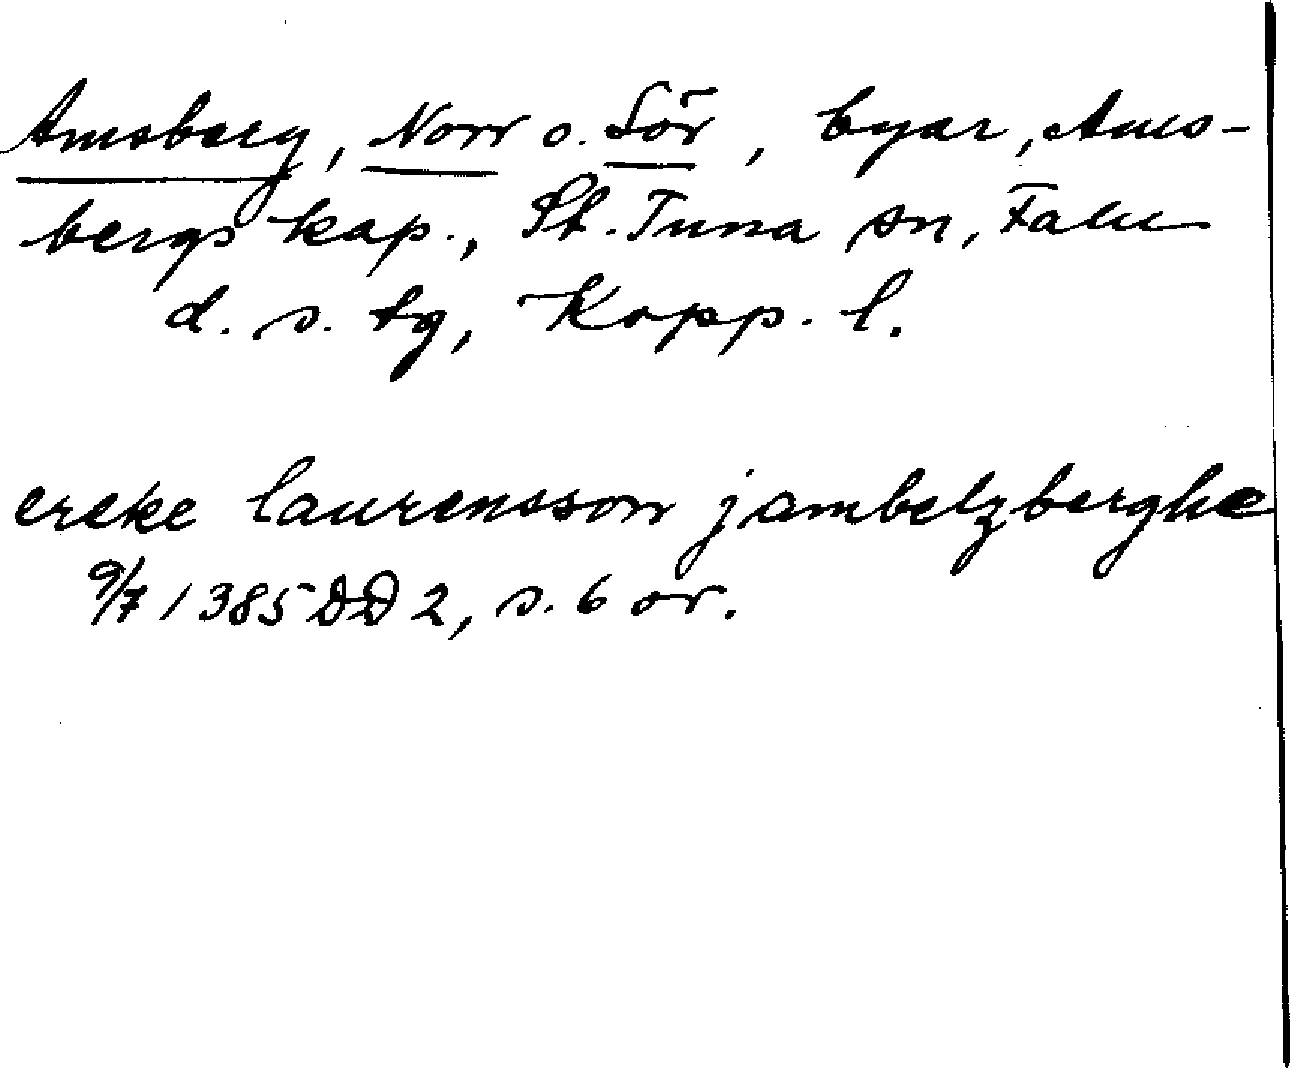 Amsberg, Norr o. Sör, byar, Ams-
bergs kap., St. Tuna sn, Falu
d. s. tg, Kopp. l.
ereke laurensson jambelzberghe
9/7 1385 DD 2, s. 6 or.